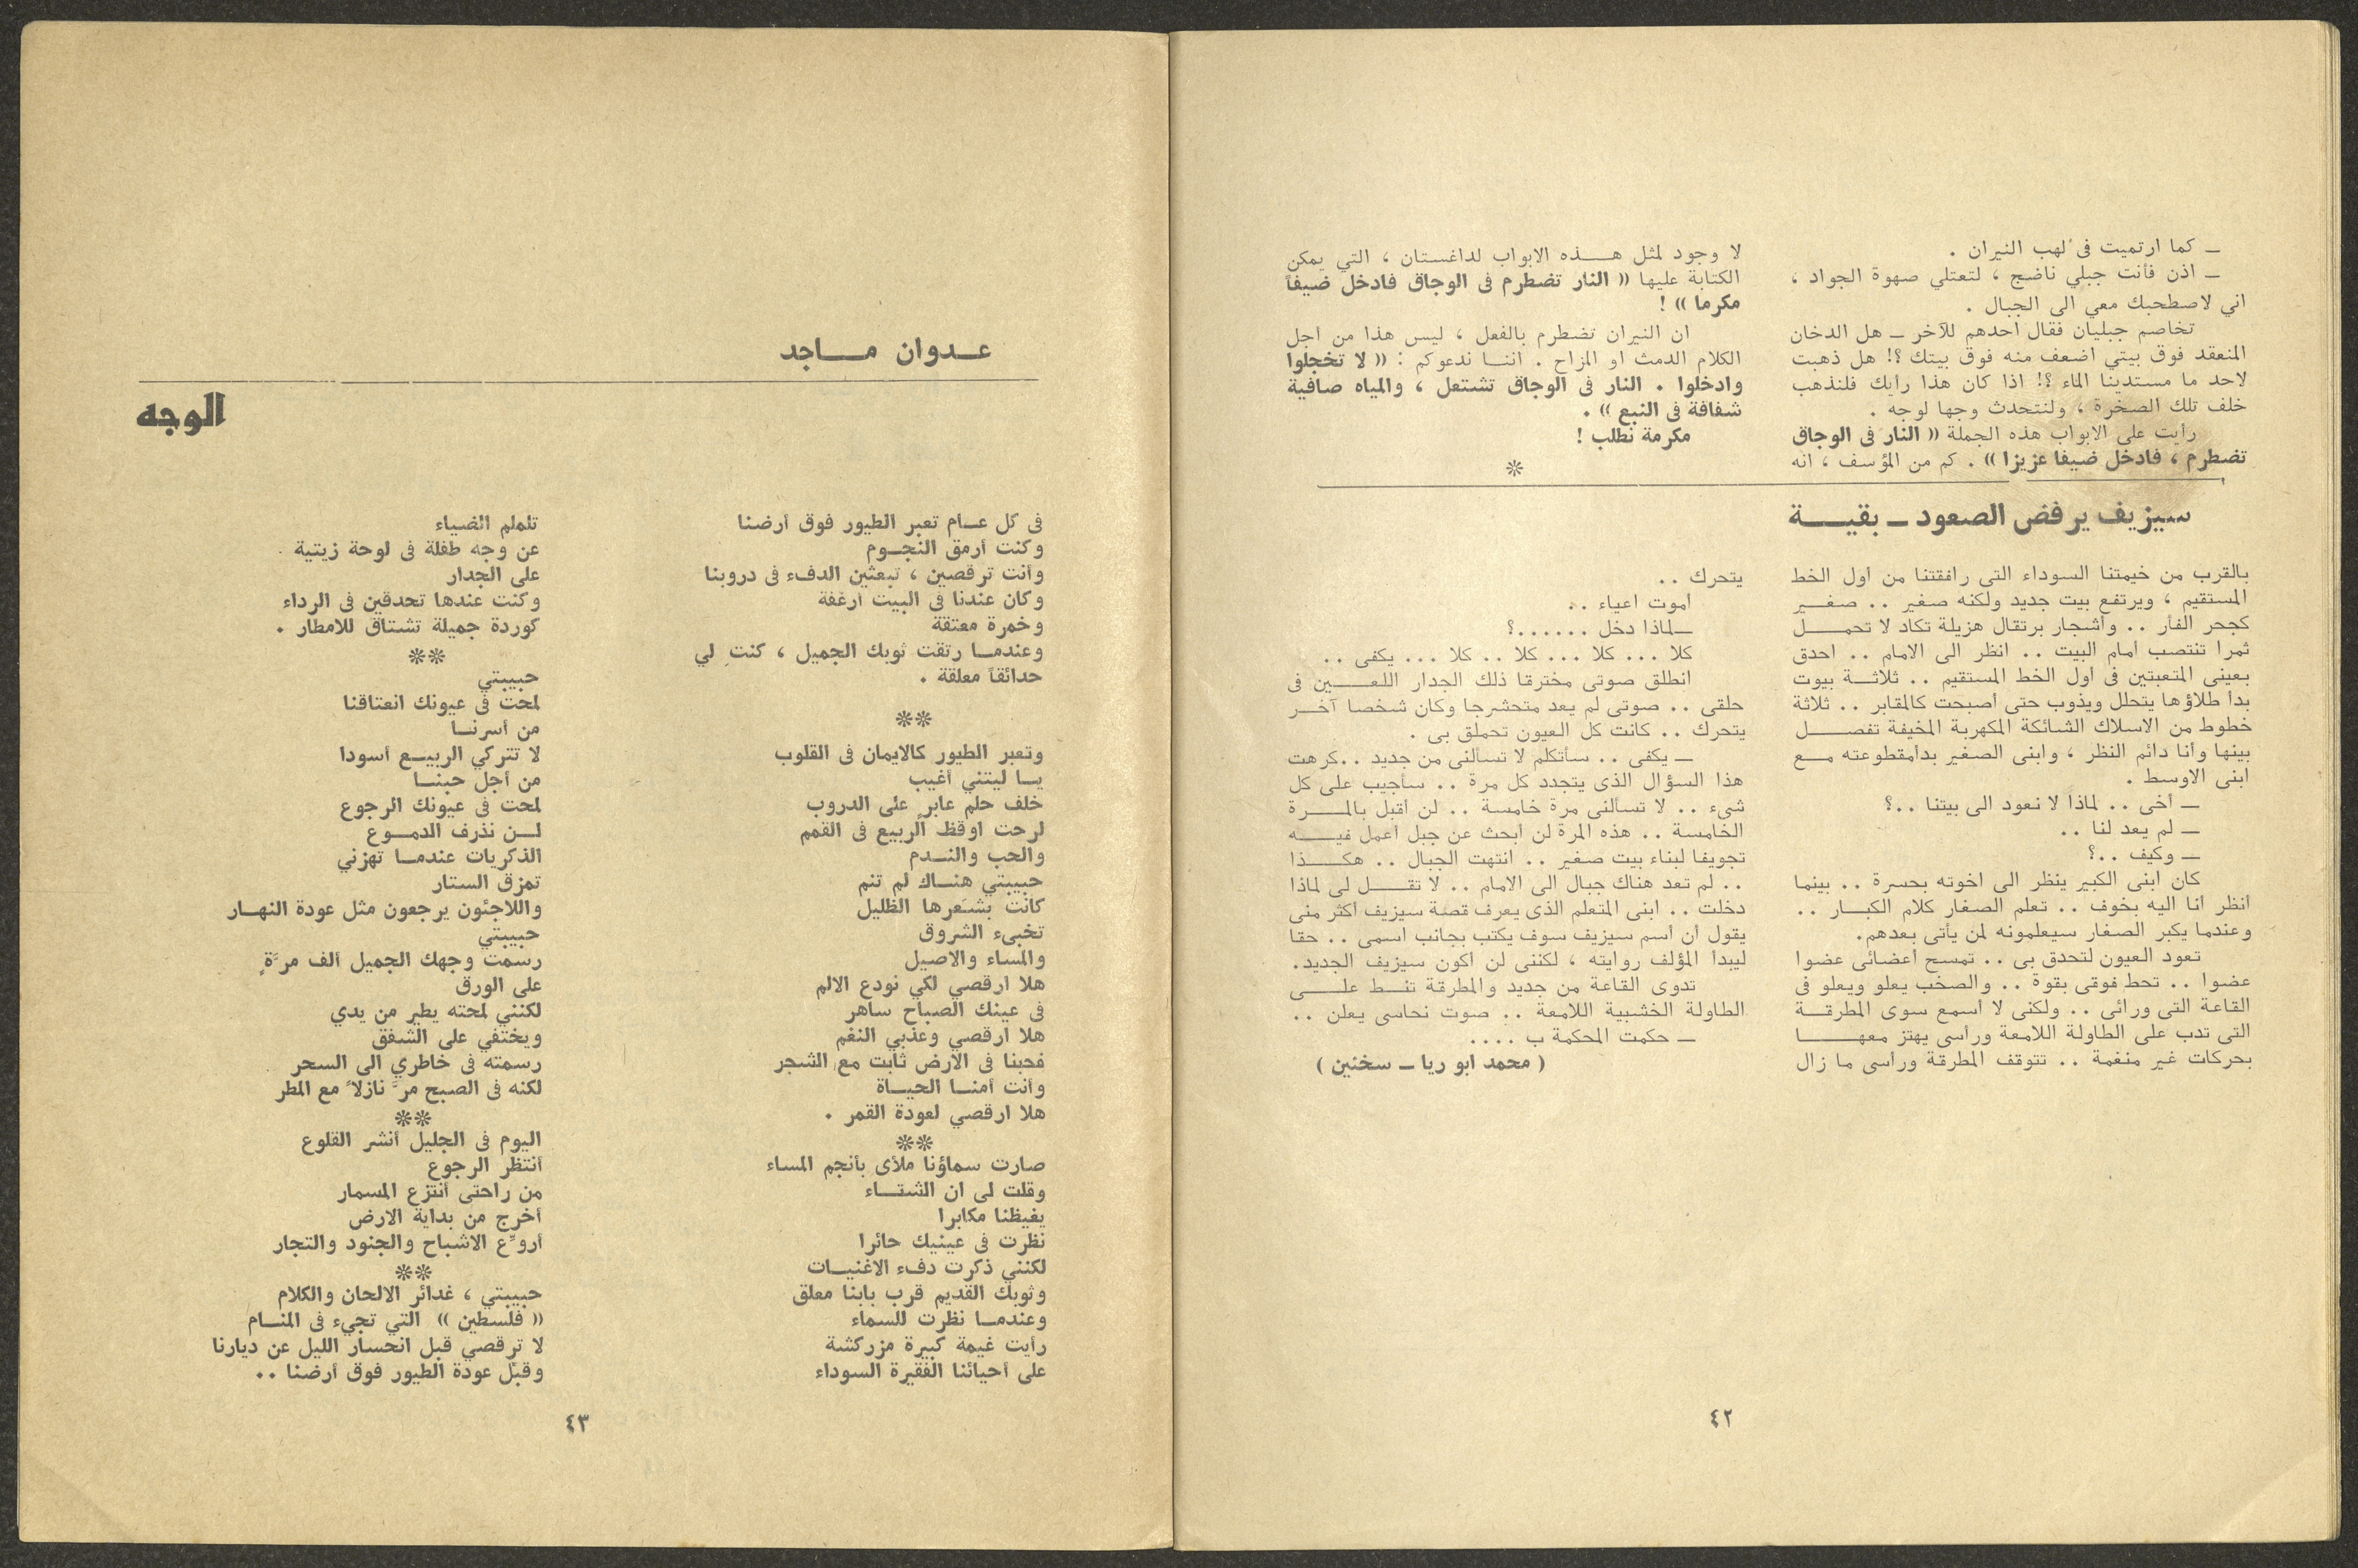 ـ كما ارتميت فى لهب النيران .
ـ اذن فأنت جبلي ناضج ، لتعتلي صهوة الجواد ،
اني لاصطحبك معي الى الجبال .
تخاصم جبليان فقال احدهم للآخر ـ هل الدخان
المنعقد فوق بيتي اضعف منه فوق بيتك ؟! هل ذهبت
لاحد ما مستدينا الماء ؟! اذا كان هذا رايك فلنذهب
خلف تلك الصخرة ، ولنتحدث وجها لوجه .
رأيت على الابواب هذه الجملة « النار فى الوجاق
تضطرم ، فادخل ضيفا عزيزا » . كم من المؤسف ، انه
لا وجود لمثل هـــذه الابواب لداغستان ، التي يمكن
الكتابة عليها « النار تضطرم فى الوجاق فادخل ضيفاً
مكرما » !
ان النيران تضطرم بالفعل ، ليس هذا من اجل
الكلام الدمث او المزاح . اننـــا ندعوكم : « لا تخجلوا
وادخلوا . النار فى الوجاق تشتعل ، والمياه صافية
شفافة فى النبع » .
مكرمة نطلب !
*
سيزيف يرفض الصعود ـ بقيـــة
بالقرب من خيمتنا السوداء التى رافقتنا من أول الخط
المستقيم ، ويرتفع بيت جديد ولكنه صغير .. صغـــير
كجحر الفأر .. وأشجار برتقال هزيلة تكاد لا تحمـــل
ثمرا تنتصب أمام البيت .. انظر الى الامام .. احدق
بعينى المتعبتين فى أول الخط المستقيم .. ثلاثـــة بيوت
بدأ طلاؤها يتحلل ويذوب حتى أصبحت كالمقابر .. ثلاثة
خطوط من الاسلاك الشائكة المكهربة المخيفة تفصـــل
بينها وأنا دائم النظر ، وابنى الصغير بدأمقطوعته مـــع
ابنى الاوسط .
ـ أخى .. لماذا لا نعود الى بيتنا ..؟
ـ لم يعد لنا ..
ـ وكيف ..؟
كان ابنى الكبير ينظر الى اخوته بحسرة .. بينما
أنظر أنا اليه بخوف .. تعلم الصغار كلام الكبـــار ..
وعندما يكبر الصغار سيعلمونه لمن يأتى بعدهم.
تعود العيون لتحدق بى .. تمسح أعضائى عضوا
عضوا .. تحط فوقى بقوة .. والصخب يعلو ويعلو فى
القاعة التى ورائى .. ولكنى لا أسمع سوى المطرقـــة
التى تدب على الطاولة اللامعة ورأسى يهتز معهـــا
بحركات غير منغمة .. تتوقف المطرقة ورأسى ما زال
يتحرك ..
أموت اعياء ..
ـلماذا دخل ......؟
كلا ... كلا ... كلا .. كلا ... يكفى ..
انطلق صوتى مخترقا ذلك الجدار اللعـــين فى
حلقى .. صوتى لم يعد متحشرجا وكان شخصا آخـــر
يتحرك .. كانت كل العيون تحملق بى .
ـ يكفى .. سأتكلم لا تسألنى من جديد ..كرهت
هذا السؤال الذى يتجدد كل مرة .. سأجيب على كل
شىء .. لا تسألنى مرة خامسة .. لن أقبل بالمـــرة
الخامسة .. هذه المرة لن أبحث عن جبل أعمل فيـــه
تجويفا لبناء بيت صغير .. انتهت الجبال .. هكـــذا
.. لم تعد هناك جبال الى الامام .. لا تقـــل لى لماذا
دخلت .. ابنى المتعلم الذى يعرف قصة سيزيف أكثر منى
يقول أن أسم سيزيف سوف يكتب بجانب اسمى .. حقا
ليبدأ المؤلف روايته ، لكننى لن أكون سيزيف الجديد.
تدوى القاعة من جديد والمطرقة تنـــط علـــى
الطاولة الخشبية اللامعة .. صوت نحاسى يعلن ..
ـ حكمت المحكمة ب ....
( محمد ابو ريا ـ سخنين )
٤٢
عـــدوان مـــاجد
الوجه
فى كل عـــام تعبر الطيور فوق أرضنا
وكنت أرمق النجـــوم
وأنت ترقصين ، تبعثين الدفء فى دروبنا
وكان عندنا فى البيت أرغفة
وخمرة معتقة
وعندمـــا رتقت ثوبك الجميل ، كنتِ لي
حدائقاً معلقة .
**
وتعبر الطيور كالايمان فى القلوب
يـــا ليتني أغيب
خلف حلم عابرٍ على الدروب
لرحت اوقظ الربيع فى القمم
والحب والنـــدم
حبيبتي هنـــاك لم تنم
كانت بشَعرها الظليل
تخبىء الشروق
والمساء والاصيل
هلا ارقصي لكي نودع الالم
فى عينك الصباح ساهر
هلا ارقصي وعذبي النغم
فحبنا فى الارض ثابت مع الشجر
وأنت أمنـــا الحيـــاة
هلا ارقصي لعودة القمر .
**
صارت سماؤنا ملأى بأنجم المساء
وقلت لى ان الشتـــاء
يغيظنا مكابرا
نظرت فى عينيك حائرا
لكنني ذكرت دفء الاغنيـــات
وثوبك القديم قرب بابنا معلق
وعندمـــا نظرت للسماء
رأيت غيمة كبيرة مزركشة
على أحيائنا الفقيرة السوداء
تلملم الضياء
عن وجه طفلة فى لوحة زيتية
على الجدار
وكنت عندها تحدقين فى الرداء
كوردة جميلة تشتاق للامطار .
**
حبيبتي
لمحت فى عيونك انعتاقنا
من أسرنـــا
لا تتركي الربيـــع أسودا
من أجل حبنـــا
لمحت فى عيونك الرجوع
لـــن نذرف الدمـــوع
الذكريات عندمـــا تهزني
تمزق الستار
واللاجئون يرجعون مثل عودة النهـــار
حبيبتي
رسمت وجهك الجميل ألف مرَّةٍ
على الورق
لكنني لمحته يطير من يدي
ويختفي على الشفق
رسمته فى خاطري الى السحر
لكنه فى الصبح مرَّ نازلاً مع المطر
**
اليوم فى الجليل أنشر القلوع
أنتظر الرجوع
من راحتى أنتزع المسمار
أخرج من بداية الارض
أروِّع الاشباح والجنود والتجار
**
حبيبتي ، غدائر الالحان والكلام
« فلسطين » التي تجيء فى المنـــام
لا ترقصي قبل انحسار الليل عن ديارنا
وقبل عودة الطيور فوق أرضنا ..
٤٣